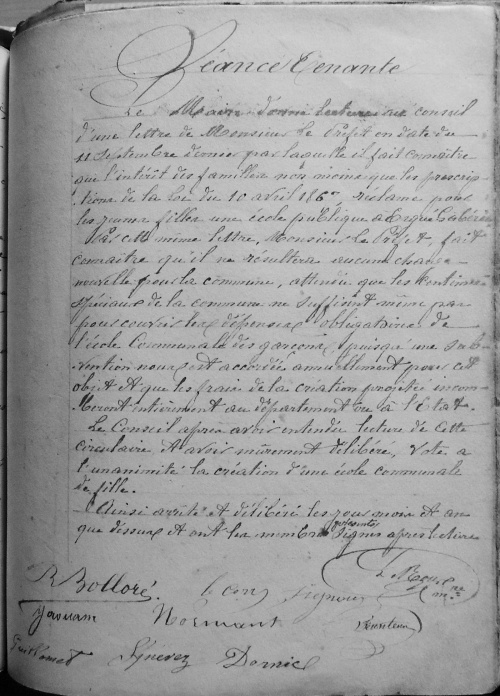 Séance Tenante
Le Maire donne lecture au conseil
d'une lettre de Monsieur le Préfet en date du
11 Septembre dernier par laquelle il fait connaître
que l'intérêt des familles non moins que les prescrip-
tions de la loi du 10 avril 1867 réclame pour
les jeunes filles une école publique à Ergué-Gabéric
Par cette même lettre, Monsieur le Préfet, fait
connaître qu'il ne résultera aucune charge
nouvelle pour la commune, attendu que les centimes
spéciaux de la commune ne suffisent même pas
pour couvrir les dépenses obligatoires de
l'école Communale des garçons, puisque une sub-
vention nous est accordée annuellement pour cet
objet et que les frais de la création projeté incom-
beront entièrement au département ou à l'Etat.
Le Conseil après avoir entendu lecture de cette
circulaire et avoir murement délibéré, vote a
l'unanimité la création d'une école communale
de fille.
Ainsi arrêté et délibéré les jour mois et an
que dessus et ont les membres présents signés après lecture
R Bolloré.
Normant
Guillomet Synerez Dornic